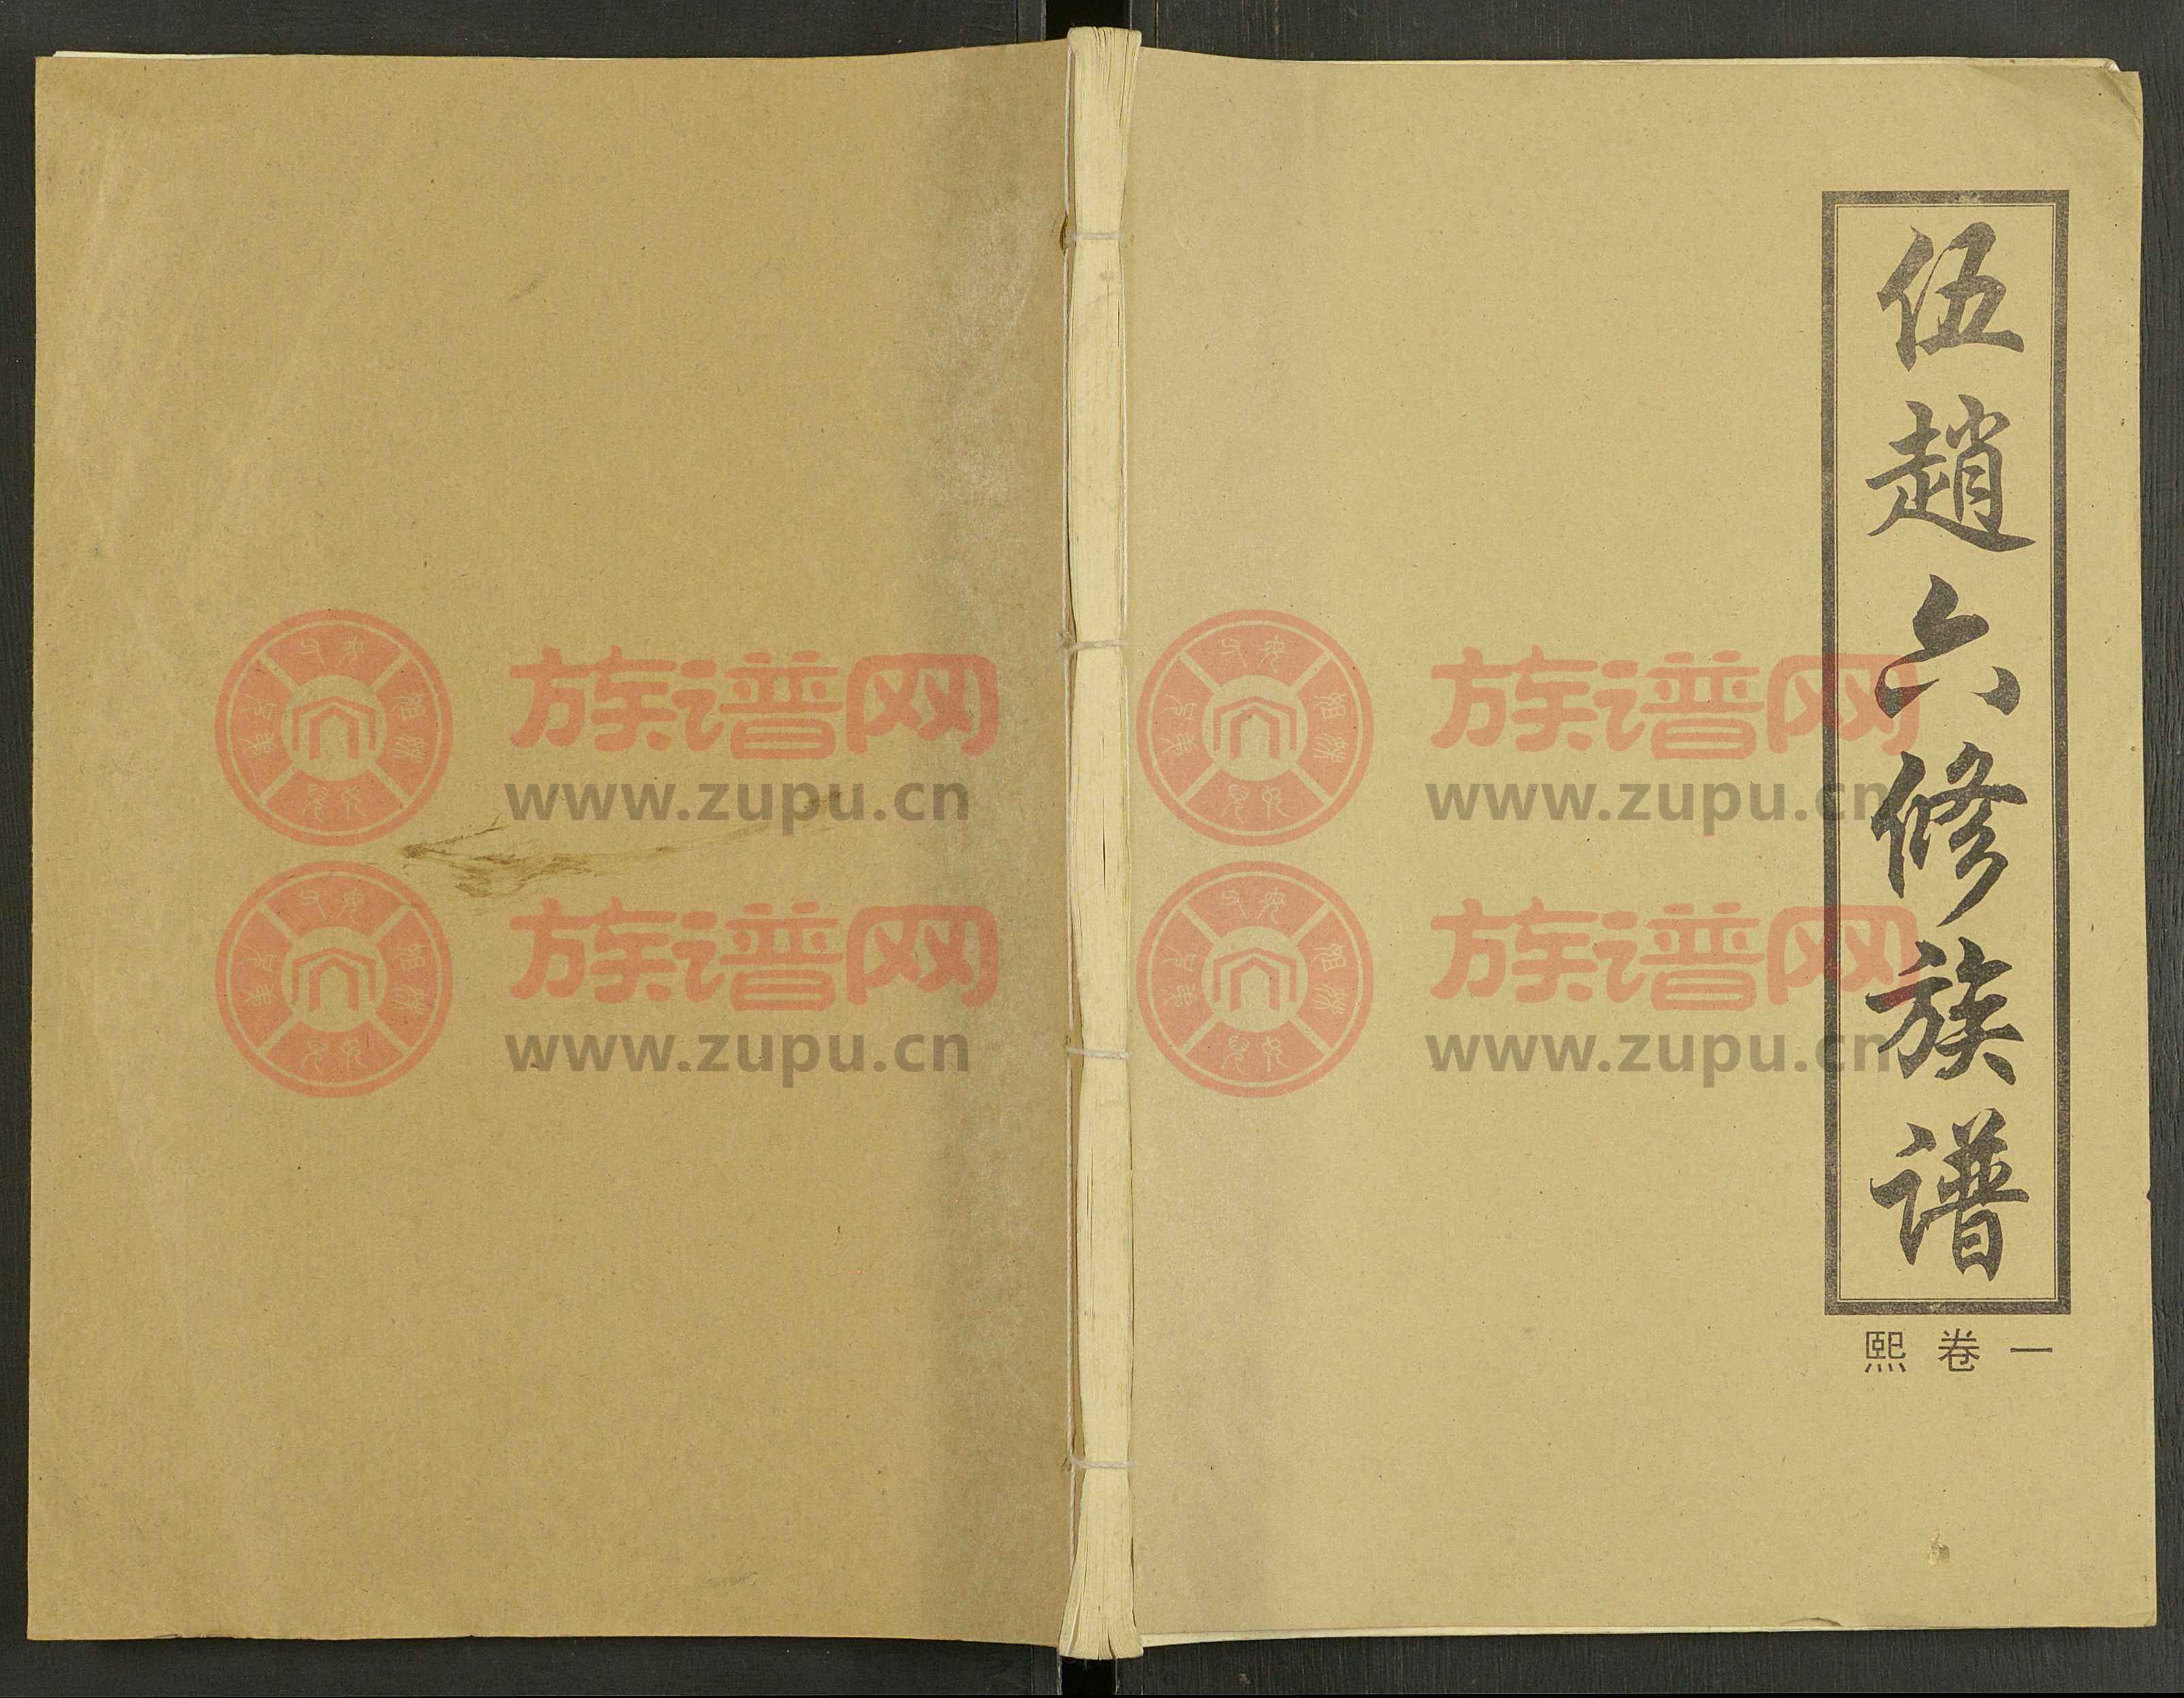 伍趙六修族谱
熙卷一
族谱网
www.zupu.cn
族谱网
www.zupu.cn
族谱网
www.zupu.cn
族谱网
www.zupu.cn